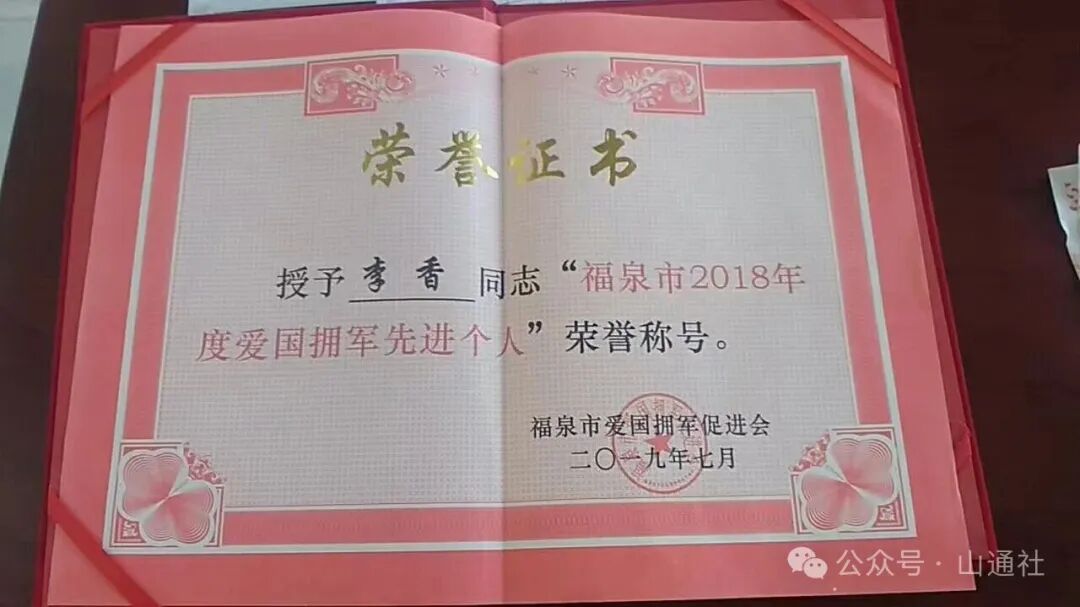 荣誉证书
授予 李香 同志“福泉市2018年
度爱国拥军先进个人”荣誉称号。
福泉市爱国拥军促进会
二〇一九年七月
公众号·山通社